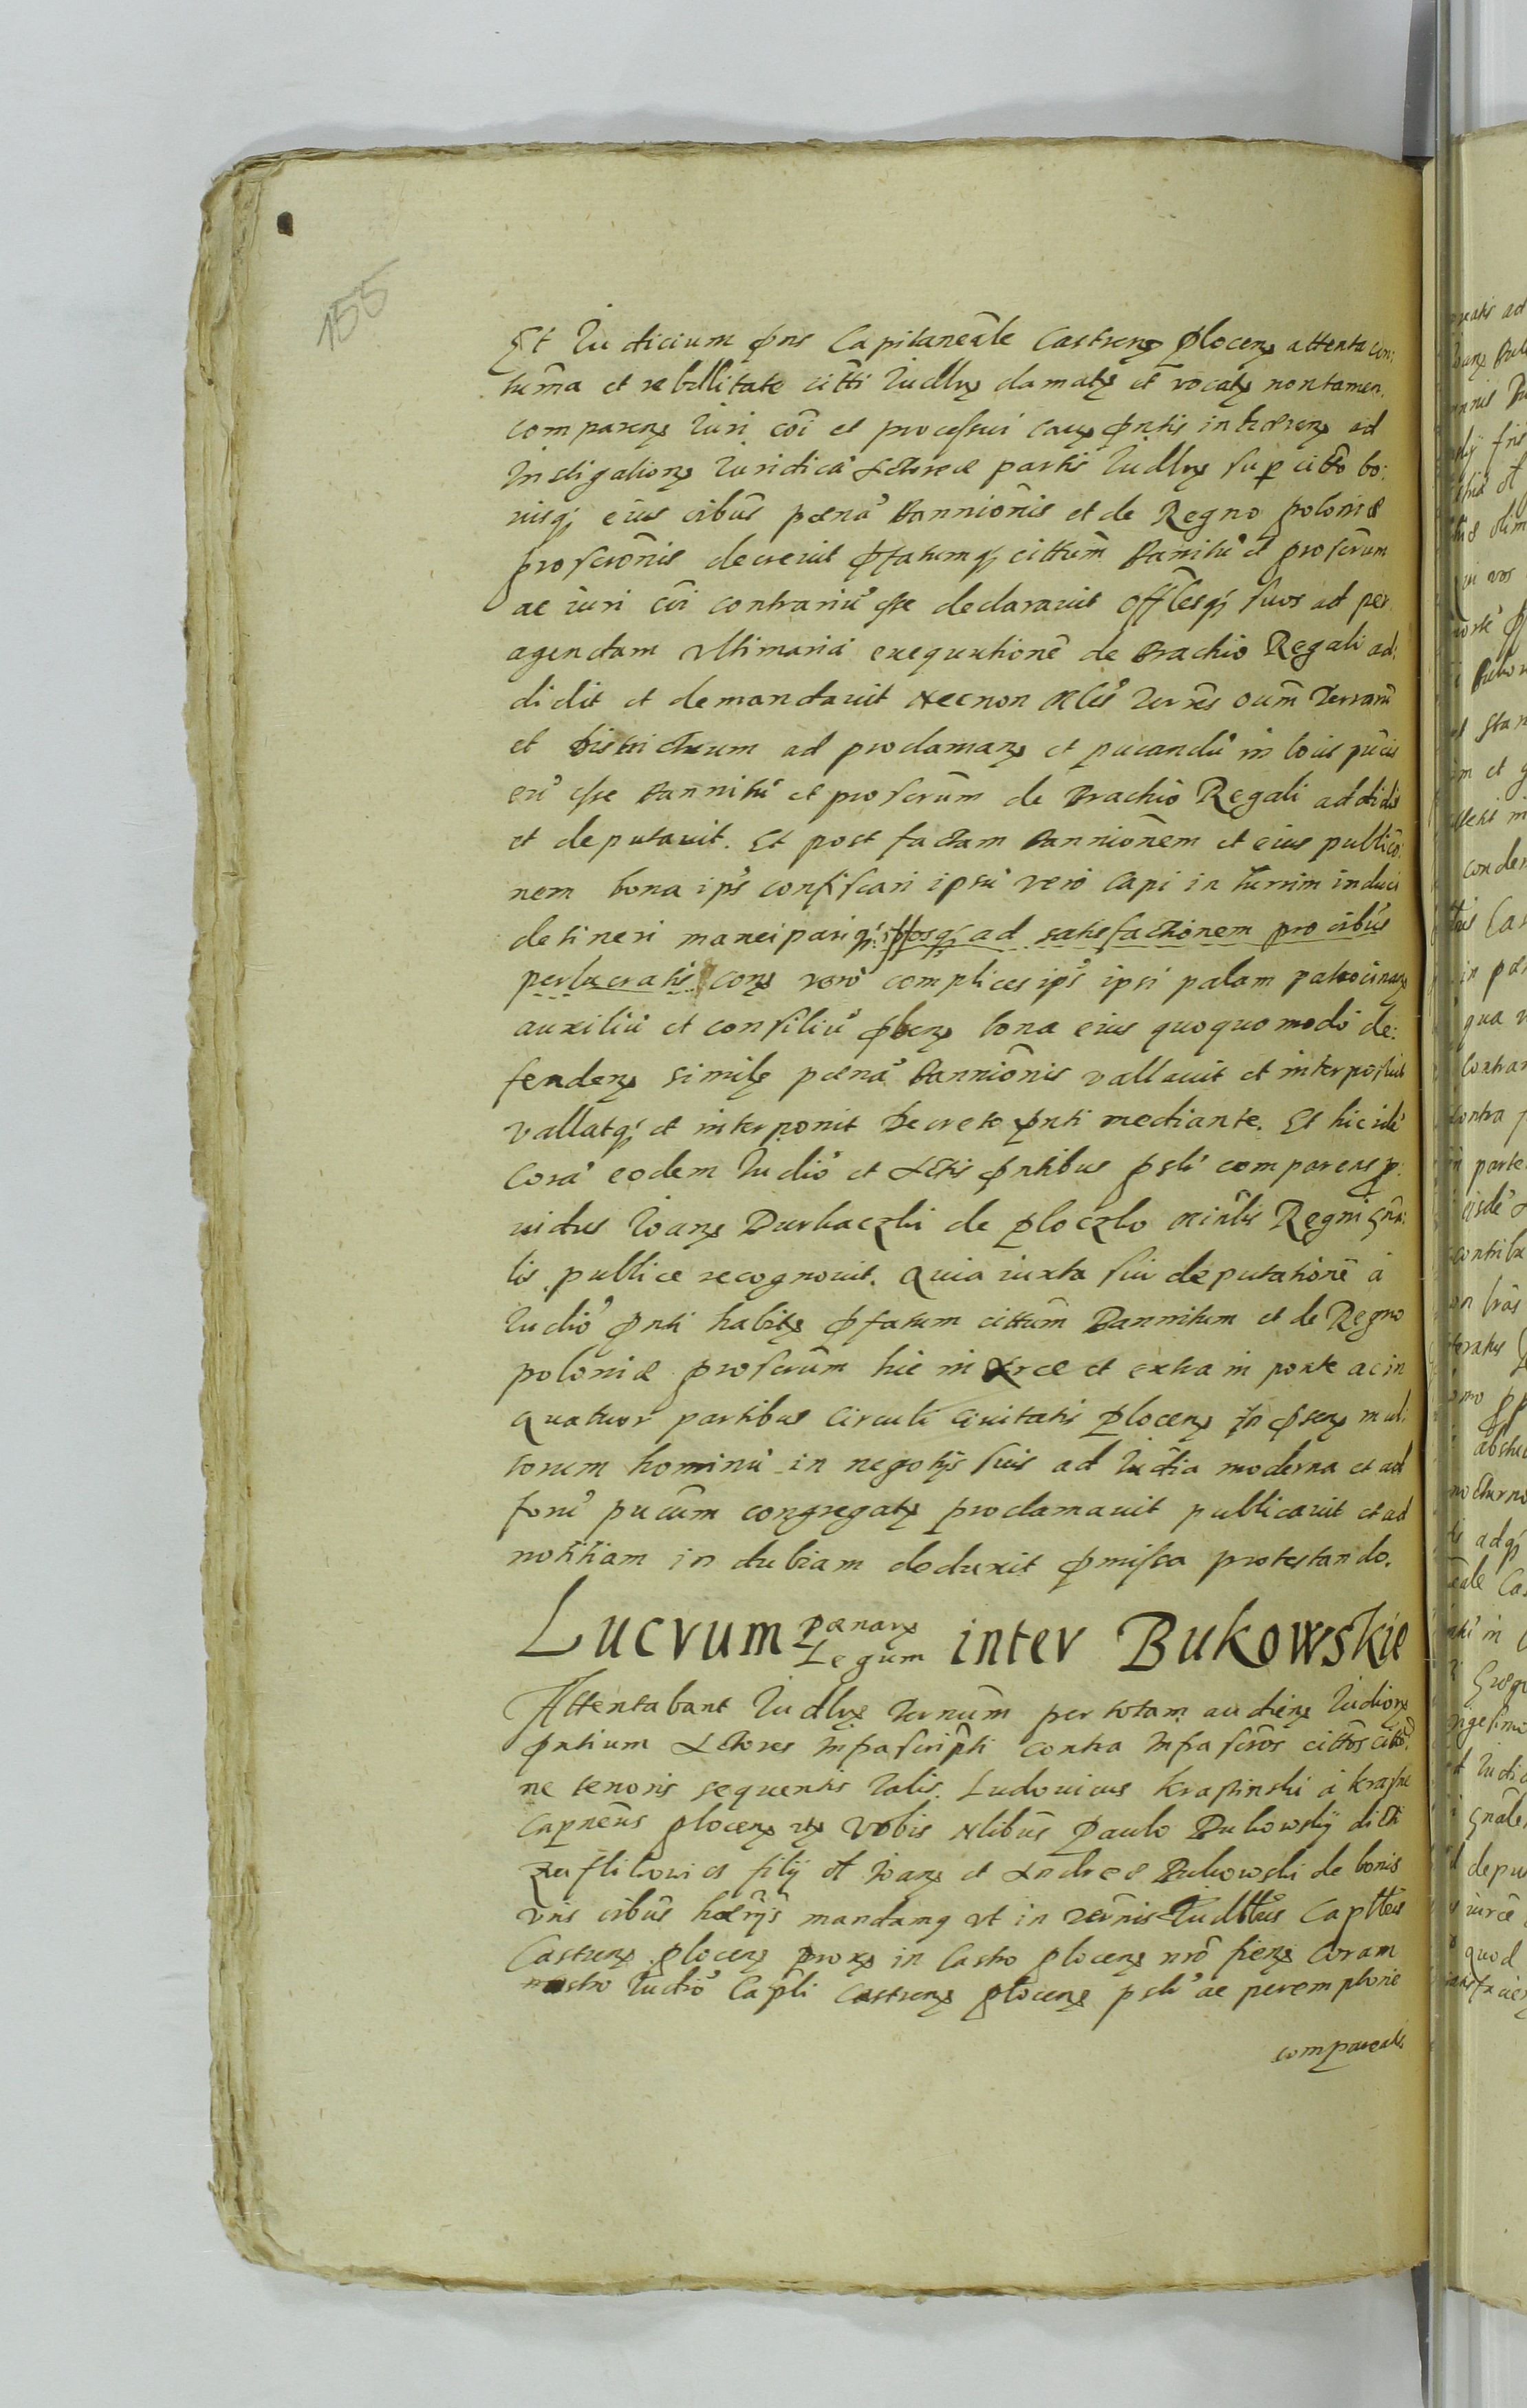 155
Et Iudicium pñs Capitaneãle Castrenȝ Plocenȝ attenta con:
tumã et rebellitate citti Iudlrȝ clamatȝ et vocatȝ non tamen
comparenȝ Iuri cõi et processui cauȝ pñtis inhærenȝ ad
Instigationȝ Iuridicã Actoreæ partis Iudlrȝ sup citto bo:
nisqȝ eius oibũs pœnã Bannionis et de Regno Poloniæ
proscrõnis decrevit pfatumqȝ cittum Banitũ et proscrum
ac iuri cõi contrariũ esse declaravit Offlesqȝ suos ad per
agendam ultimariã exequutionẽ de Brachio Regali ad:
didit et demandavit Necnon Terrẽs oum Terrarũ
et Districtuum ad proclamanȝ et pucandũ in locis pucis
eũ esse Bannitũ et proscrum de Brachio Regali addidit
et deputavit. Et post factam Bannionem et eius publicõ
nem bona ips confiscari ipsũ vero capi in turrim induci
detineri mancipariqȝ ad satisfactionem pro oibus
perlucratis conȝ vero complices ips ipsi palam patrocinanȝ
auxiliũ et consiliũ pbenȝ bona eius quoquo modo de:
fendenȝ similȝ pœnã Bannionis vallavit et interposuit
vallatqȝ et interponit Decreto pnti mediante. Et hic idẽ
Corã eodem Iudiõ et Actis pntibus pslr comparens p:
vidus Ioanȝ Durkaczki de Ploczko Minlis Regni gnã:
lis publice recognovit. Quia iuxta sui deputationẽ a
Iudiõ pnti habitȝ pfatum cittum Bannitum et de Regno
Poloniæ proscrum hic in Arce et extra in ponte ac in
quatuor partibus circuli Civitatis Plocenȝ In psenȝ mul:
torum hominũ in negotijs suis ad Iudia moderna et ad
forũ pucum congregatȝ proclamavit publicavit et ad
notitiam indubiam deduxit pmissa protestando.
Lucrum Pœnarȝ Legum inter Bukowskie
Attentabant Iudlrȝ Ternum per totam audienȝ Iudiorȝ
pntium Actores Infrascripti contra Infrascros cittos cittõ
ne tenoris sequentis talis. Ludovicus Krasinski a Krasne
Capneus Plocenȝ Vobis Nlibus Paulo Bukowskij dicti
filij et Ioanȝ et Andreæ Bukowski de bonis
vris oibũs hærijs mandamȝ ut in Termis Iudllbus Capllbus
Castrenȝ Plocenȝ proxȝ in Castro Plocenȝ nrõ fienȝ Coram
nostro Iudiõ Capli Castrenȝ Plocenȝ pslr ac peremptorie
compareatis